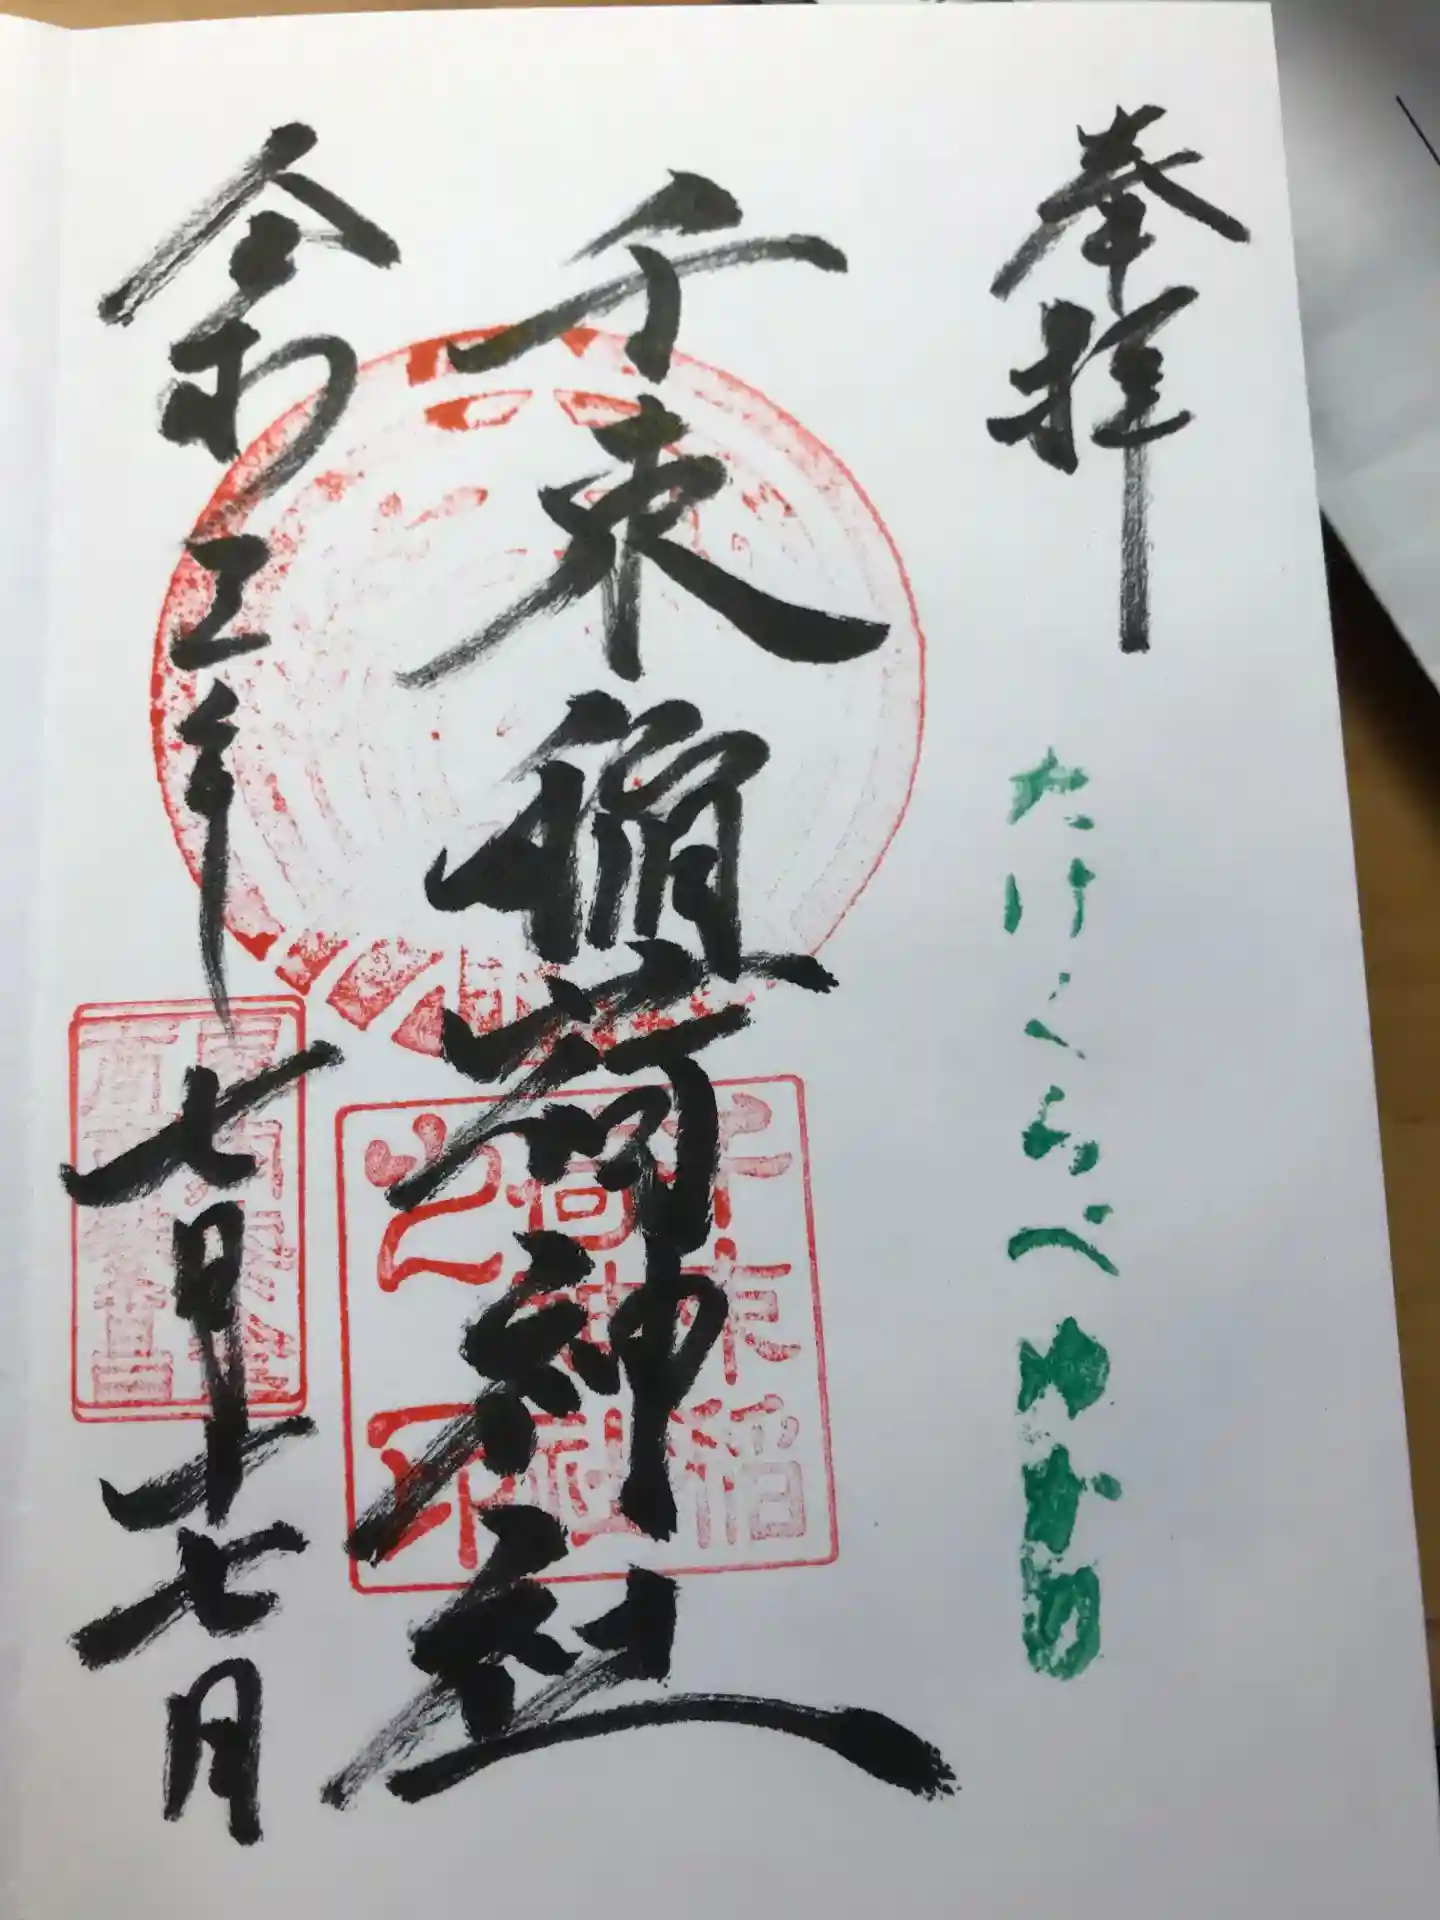 奉拝
たけくらべゆかりの
千束稲荷神社
令和五年七月十七日
千束稲
荷神社
之印